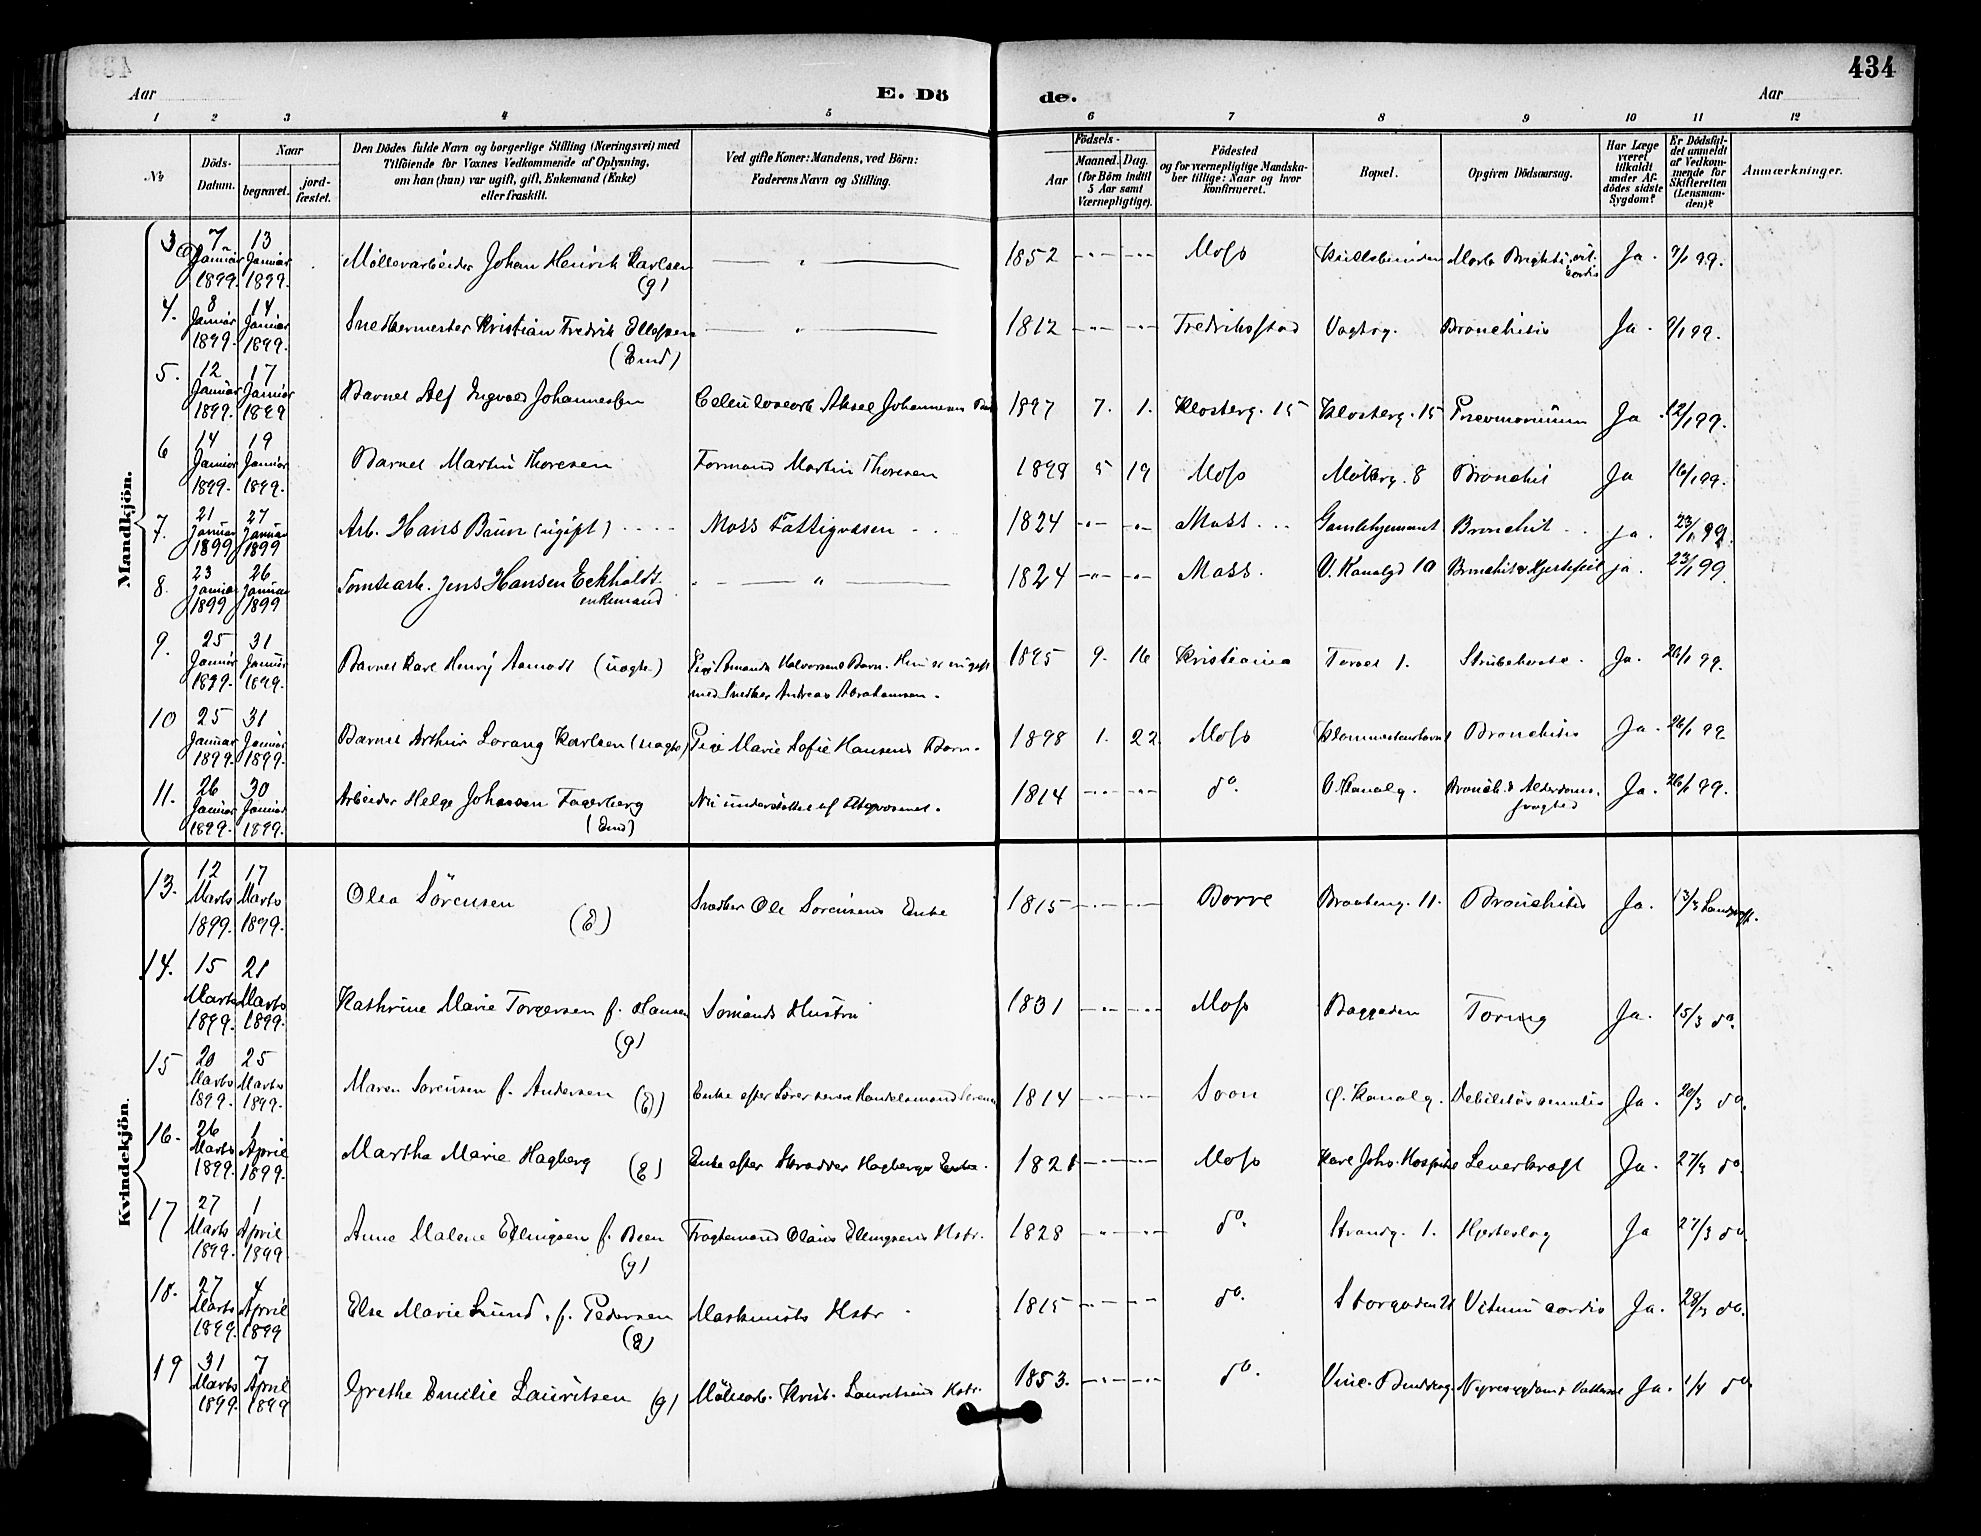 434
Aar
E. Döde.
Aar
1 2 3 4 5 6 7 8 9 10 11 12
№
Döds-Datum.
Naar
begravet.
jord-fæstet.
Den Dödes fulde Navn og borgerlige Stilling (Næringsvei) med
Tilföiende for Voxnes Vedkommende af Oplysning,
om han (hun) var ugift, gift, Enkemand (Enke)
eller fraskilt.
Ved gifte Koner: Mandens, ved Börn:
Faderens Navn og Stilling.
Födsels-
Aar
Maaned. Dag.
(for Börn indtil
5 Aar samt
Værnepligtige).
Födested
og for værnepligtige Mandska-
ber tillige: Naar og hvor
konfirmeret.
Bopæl.
Opgiven Dödsaarsag.
Har Læge
været
tilkaldt
under Af-
dödes sidste
Sygdom?
Er Dödsfal-
det anmeldt
af Vedkom-
mende for
Skifteretten
(Lensman-
den)?
Anmærkninger.
Mandkjön.
3 7 Januar 1899. 13 Januar 1899. Möllerarbeider Johan Henrik Karlsen (g) 1852 Moss Morb. Brightii, vit. cordis Ja. 9/1 99.
4. 8 Januar 1899. 14 Januar 1899. Snedkermester Kristian Fredrik Ellefsen (Emd) 1812 Fredrikstad Vogtsg. Bronchitis Ja. 9/1 99.
5. 12 Januar 1899. 17 Januar 1899 Barnet Alf Ingvald Johannessen Celulosearb. Aksel Johannesen 1897 7. 1. Klosterg. 15 Klosterg. 15 Ja 12/1 99.
6 14 Januar 1899. 19 Januar 1899. Barnet Martin Thoresen Formand Martin Thoresen 1898 5 19 Moss Möllerg. 8 Bronchit Ja 16/1 99.
7. 21 Januar 1899 27 Januar 1899 Arb. Hans Baun (ugift) Moss Fattigvæsen 1824 Moss Gamlehjemmet Bronchit ja. 23/1 99.
8. 23 Januar 1899 26 Januar 1899 Tomtearb. Jens Hansen Eckholdt enkemand 1824 Moss. V. Kanalgd 10 Bronchit & Hjertefeil ja. 23/1 99.
9. 25 Januar 1899 31 Januar 1899. Barnet Karl Henry Aamodt (uægte.) Pige Amanda Halvorsens Barn. Hun er nu gift
med Snedker Andreas Abrahamsen. 1895 9. 16 Kristiania Torvet 1. Strubehoste. Ja. 26/1 99.
10 25 Januar 1899. 31 Januar 1899. Barnet Arthur Lorang Karlsen (uægte) Pige Marie Sofie Hansens Barn. 1898 1. 22 Moss Bronchitis Ja. 26/1 99
11. 26 Januar 1899. 30 Januar 1899. Arbeider Helge Johansen Fagerberg (Emd) Nu understöttet af Fatgvæsenet. 1814 do. V. Kanalg. Bronch. & Alderdoms-
svaghed Ja. 26/1 99.
Kvindekjön.
13. 12 Marts 1899. 17 Marts 1899. Olea Sörensen (E) Snedker Ole Sorensens Enke 1815 Borre Braateng. 11. Bronchitis Ja. 13/3
14. 15 Marts 1899. 21 Marts 1899. Kathrine Marie Torgersen f. Hansen (g) Sömands Hustru 1831 Moss Baggaden Tæring Ja. 15/3 do.
15 20 Marts 1899. 25 Marts 1899. Maren Sorensen f. Andersen (E) 1814 Soon Ø. Kanalg. Debilitas senilis Ja. 20/3 do.
16. 26 Marts 1899. 1 April 1899. Martha Marie Hagberg (E) Enke efter Skrædder Hagbergs Enke. 1821 Moss Karl Johs. Hospital Leverkræft Ja. 27/3 do.
17 27 Marts 1899. 1 April 1899 Anne Malene Ellingsen f. Been (g) Fragtemand Olaus Ellingsens Hstr. 1828 do. Strandg. 1. Hjerteslag Ja 27/3 do.
18. 27 Marts 1899. 4 April 1899 Else Marie Lund, f. Pedersen (E) Maskinists Hstr 1815 do. Storgaden 21 Vitium cordis Ja. 28/3 do.
19 31 Marts 1899. 7 April 1899 Grethe Emilie Lauritsen (g) Möllearb. Krist. Lauritsens Hstr. 1853. do. Nyresygdom & Vattersot Ja. 1/4 do